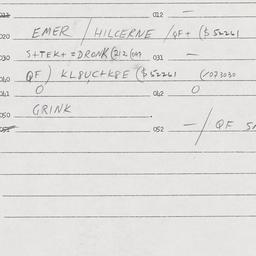 012 —
020 EMER / HILCERNE / QF + ($52261
030 S+TEK+=DRONK(212 031 —
040 QF) KL8UC+K8E ($52261 (/073030
041 0 042 0
050 GRINK
052 052 — / QF